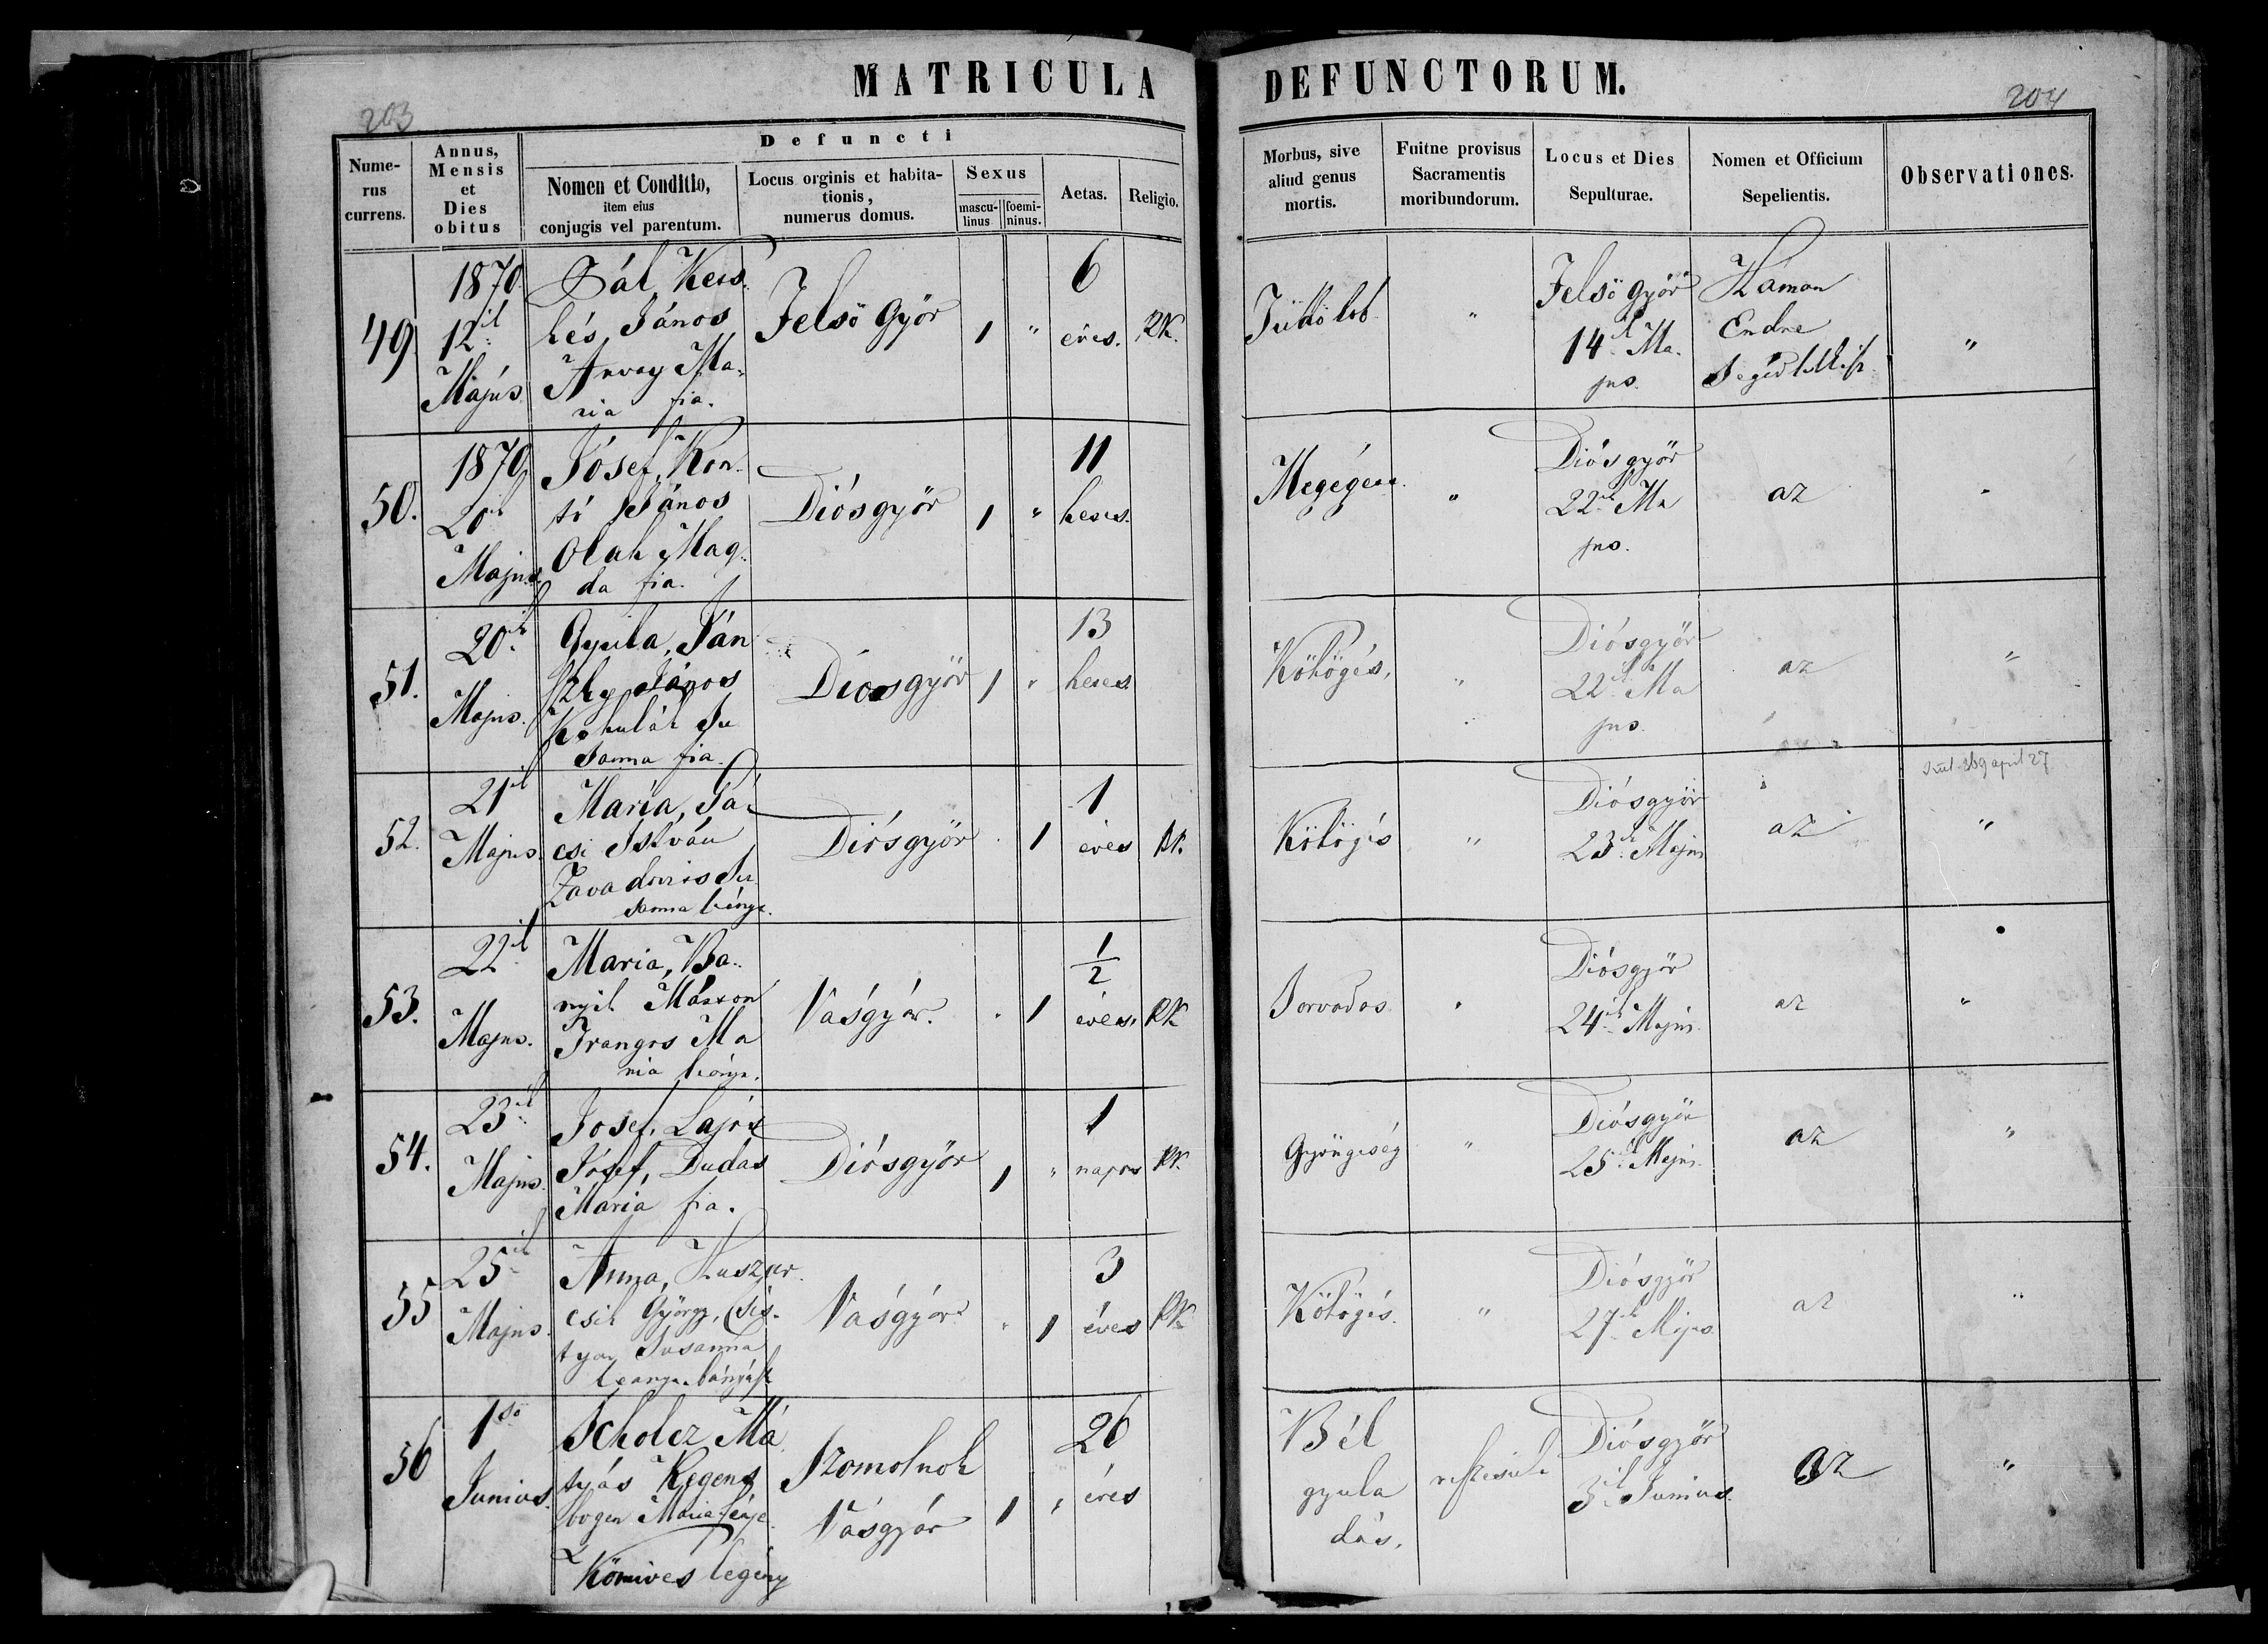 MATRICULA DEFUNCTORUM.
203
204
Defuncti
Numerus currens.
Annus, Mensis et Dies obitus
Nomen et Conditio, item eius conjugis vel parentum.
Locus orginis et habitationis, numerus domus.
Sexus
masculinus
foemininus.
Aetas.
Religio.
Morbus, sive aliud genus mortis.
Fuitne provisus Sacramentis moribundorum.
Locus et Dies Sepulturae.
Nomen et Officium Sepelientis.
Observationes.
49
1870.
12ik
Majus
Pál,
János
Arvay Ma-
ria fia.
Felső Győr
1
"
6
éves.
RK.
"
Felső Győr
14ik Ma-
jus.
Káman
Endre
"
50.
1870
20ik
Majus.
Jósef, Kon-
tó János
Olah Mag-
da fia.
Diósgyőr
1
"
11
hetes.
Megégése.
"
Diósgyőr
22ik Ma
jus.
az
"
51.
20ik
Majus.
Gyula,
János
Su
sanna fia.
Diosgyőr
1
"
13
hetes.
Köhögés,
"
Diósgyőr
22ik Ma
jus.
az
"
52.
21ik
Majus.
Mária,
csi István
Su
sanna leánya.
Diósgyőr
"
1
1
éves
RK.
Köhögés
"
Diósgyőr
23ik Majus
az
april 27
"
53.
22ik
Majus.
Maria, Ba-
nyik Márton
Frangos Ma
ria leánya.
Vásgyár.
"
1
1/2
éves.
RK
Sorvadás.
"
Diósgyőr
24ik Majus.
az
"
54.
23ik
Majus.
Josef, Lajos
Jósef, Dudás
Maria fia.
Diósgyőr
1
"
1
napos
RK.
Gyöngeség
"
Diósgyőr
25ik Majus.
az
"
55
25ik
Majus.
Anna, Huszár-
csik György,
Susanna
leanya bányász
Vásgyár
"
1
3
éves
RK
Köhögés.
"
Diósgyőr
27ik Majus.
az
"
56
1ső
Junius.
Scholcz Má
tyás Regens
bogen Maria férje
Kömives legény
Szomolnok
Vásgyár
1
"
26
éves
Bél
gyula
dás.
részesült
Diósgyőr
3ik Junius.
az
"